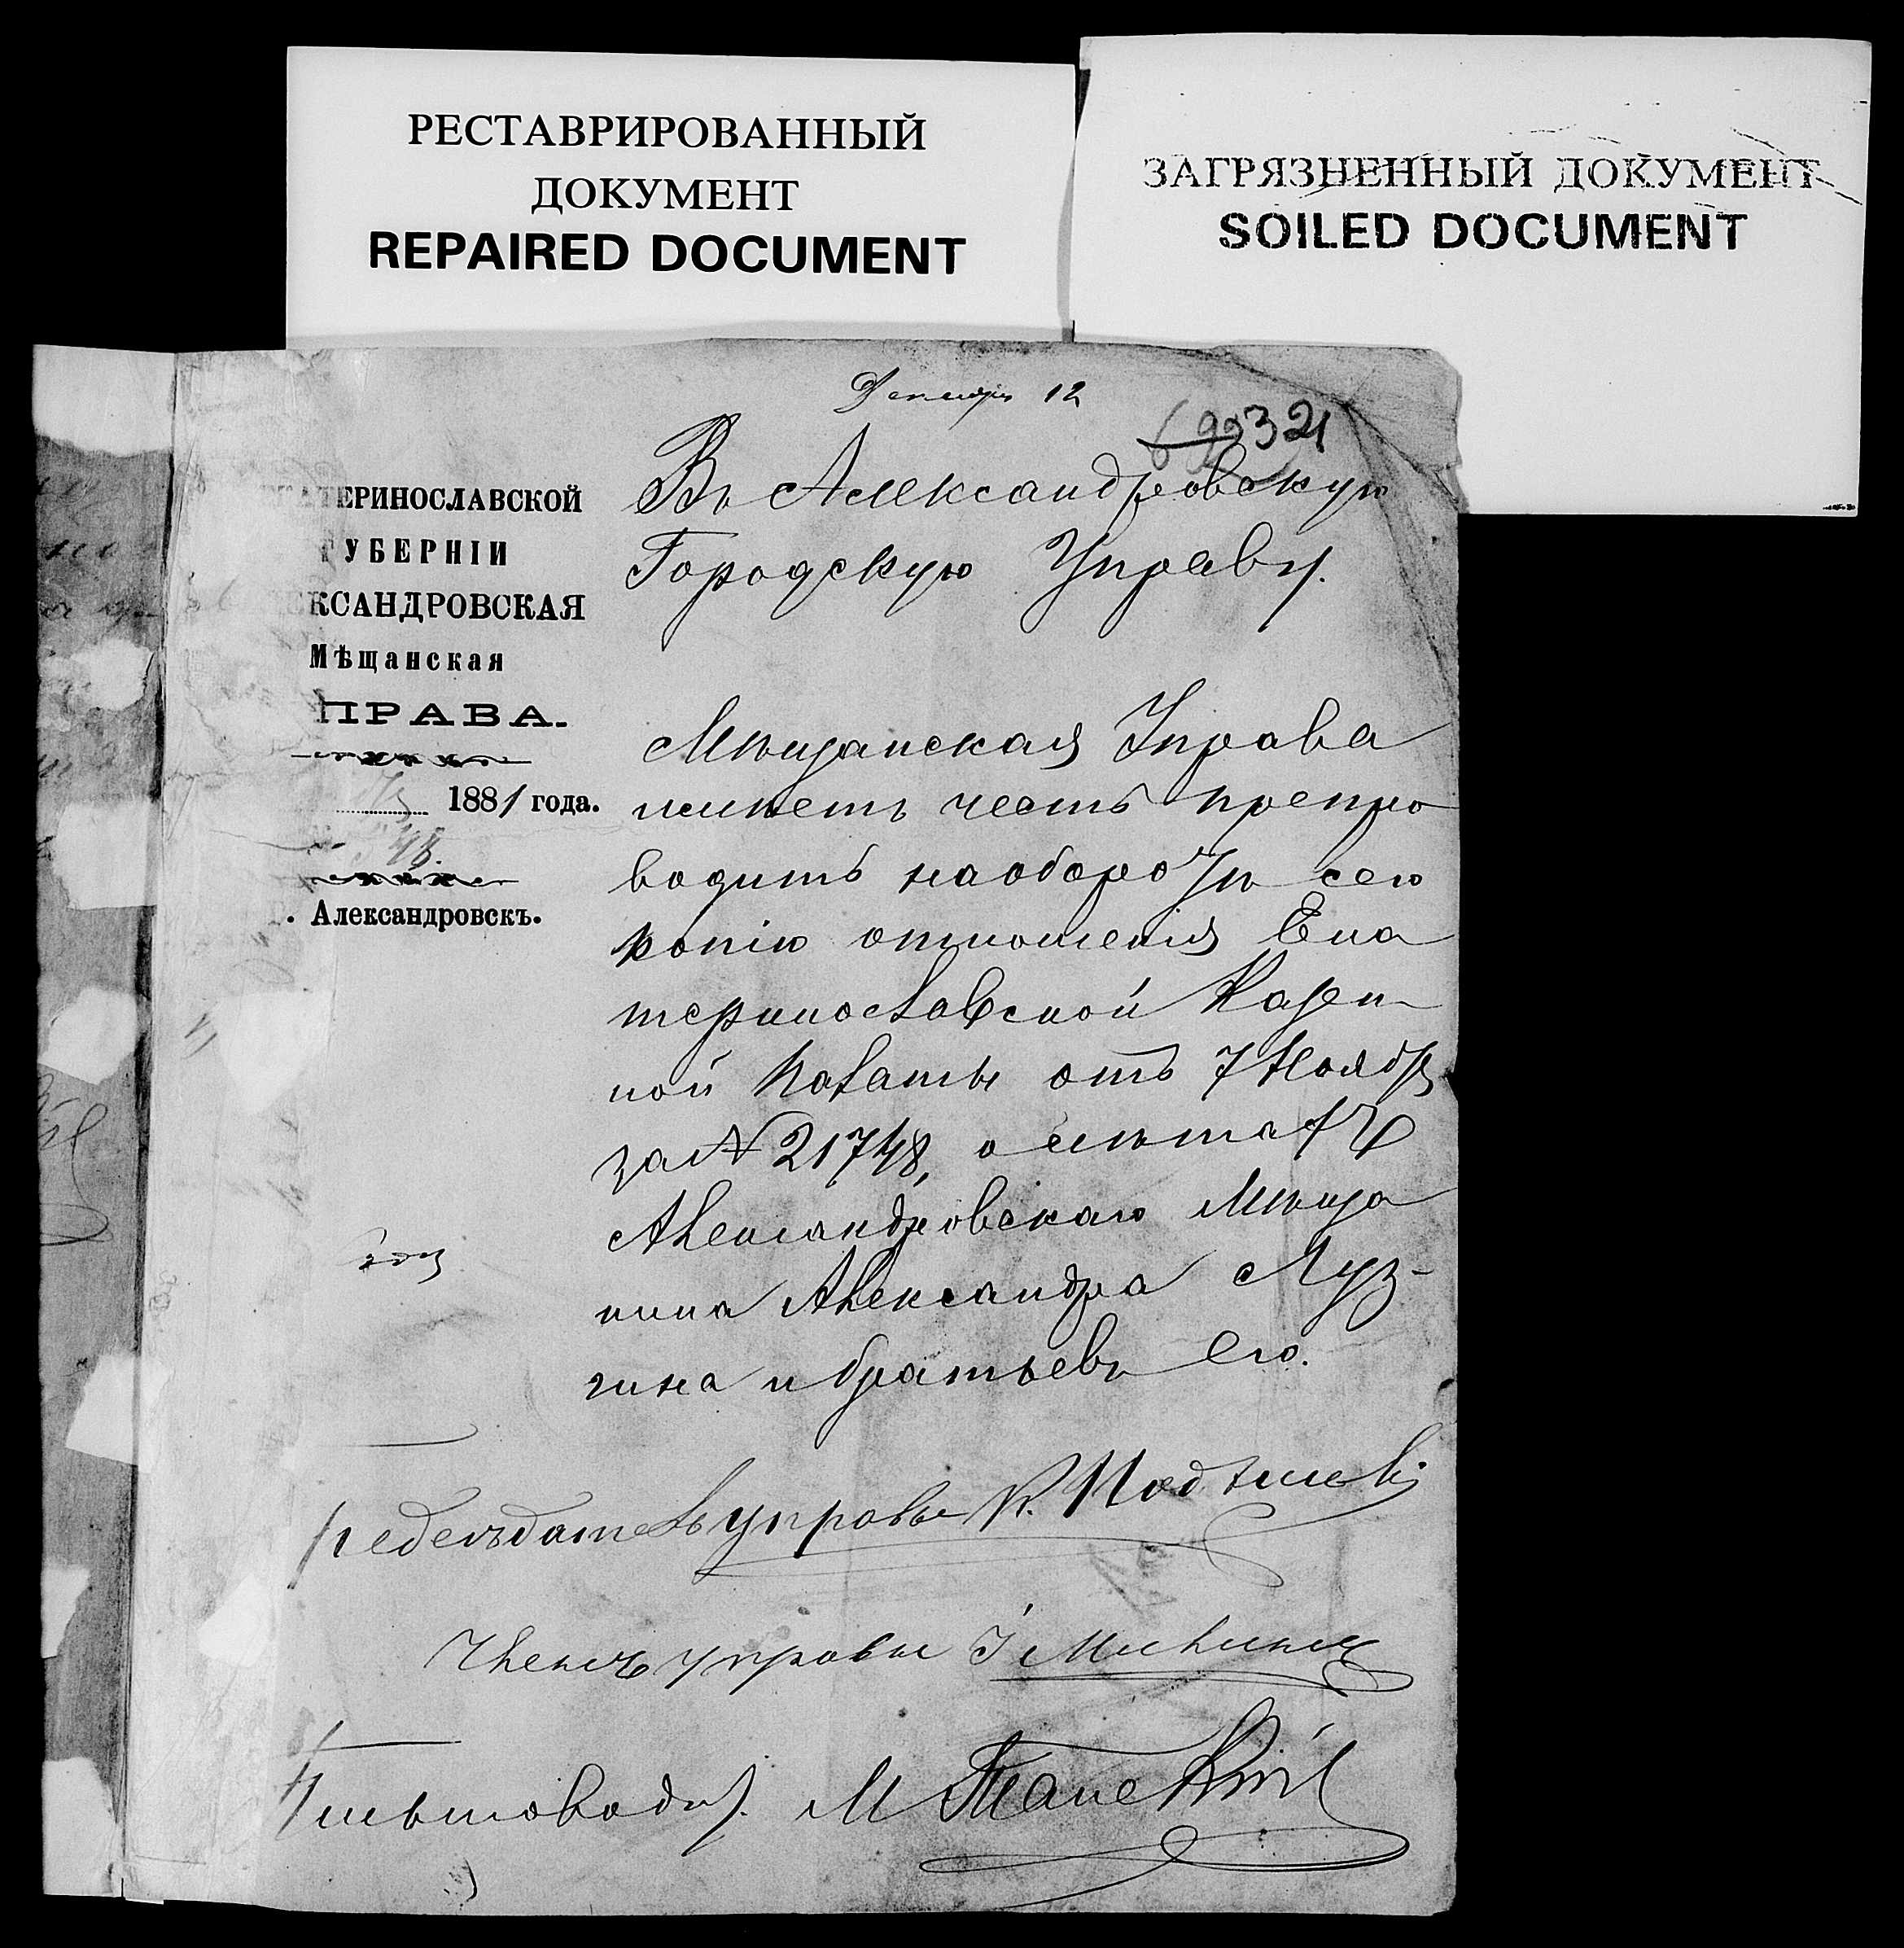 РЕСТАВРИРОВАННЫЙ
ДОКУМЕНТ
REPAIRED DOCUMENT
ЗАГРЯЗНЕННЫЙ ДОКУМЕНТ
SOILED DOCUMENT
12
321
ЕКАТЕРИНОСЛАВСКОЙ
ГУБЕРНІИ
КСАНДРОВСКАЯ
Мѣщанская
ПРАВА.
1881 года.
48.
. Александровскъ.
Въ Александровскую
Городскую Управу.
Мѣщанская Управа
имѣетъ честь препро
водить на оборотѣ сего
копію отношенія Ека
теринославской Казен
ной Палаты отъ 7 Ноября
за № 21748, о
Александровскаго Мѣща
нина Александра Луз-
гина и братьевъ его.
редсѣдатель управы
Членъ управы
Письмовод. М